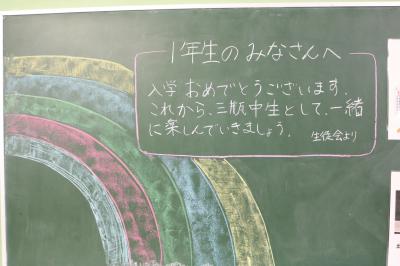 1年生のみなさんへ
入学おめでとうございます。
これから、三瓶中生として、一緒
に楽しんでいきましょう。
生徒会より